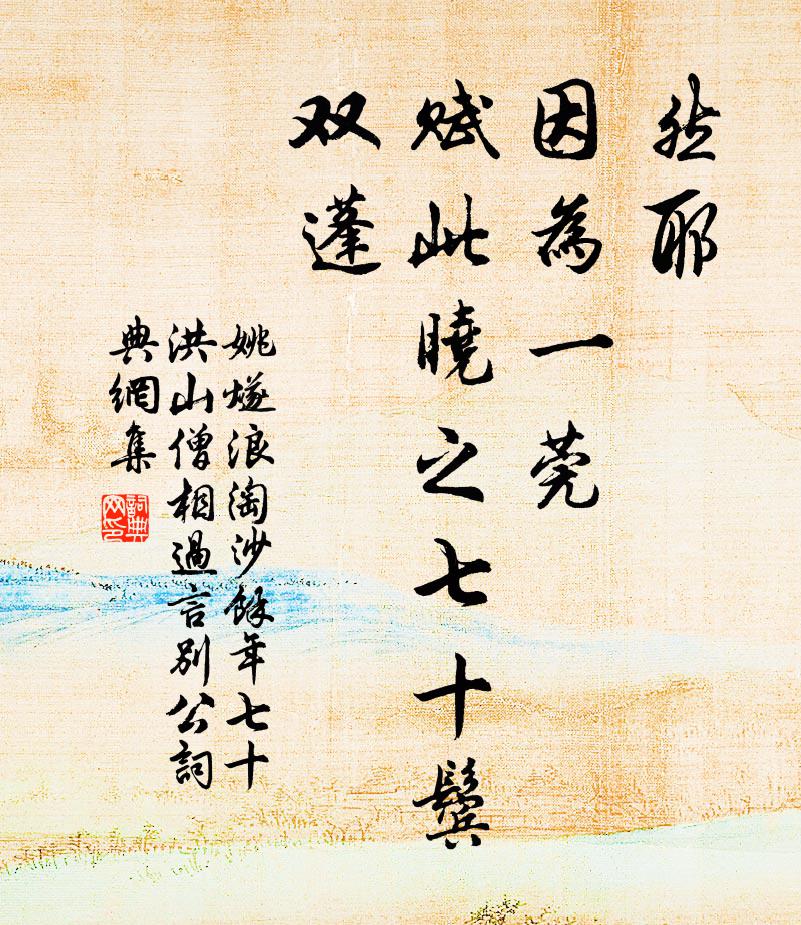 然耶
因為一莞
賦此曉之七十鬢
双蓬
姚燧浪淘沙餘年七十
洪山僧相過言別公詞
典網集
詞典
网印